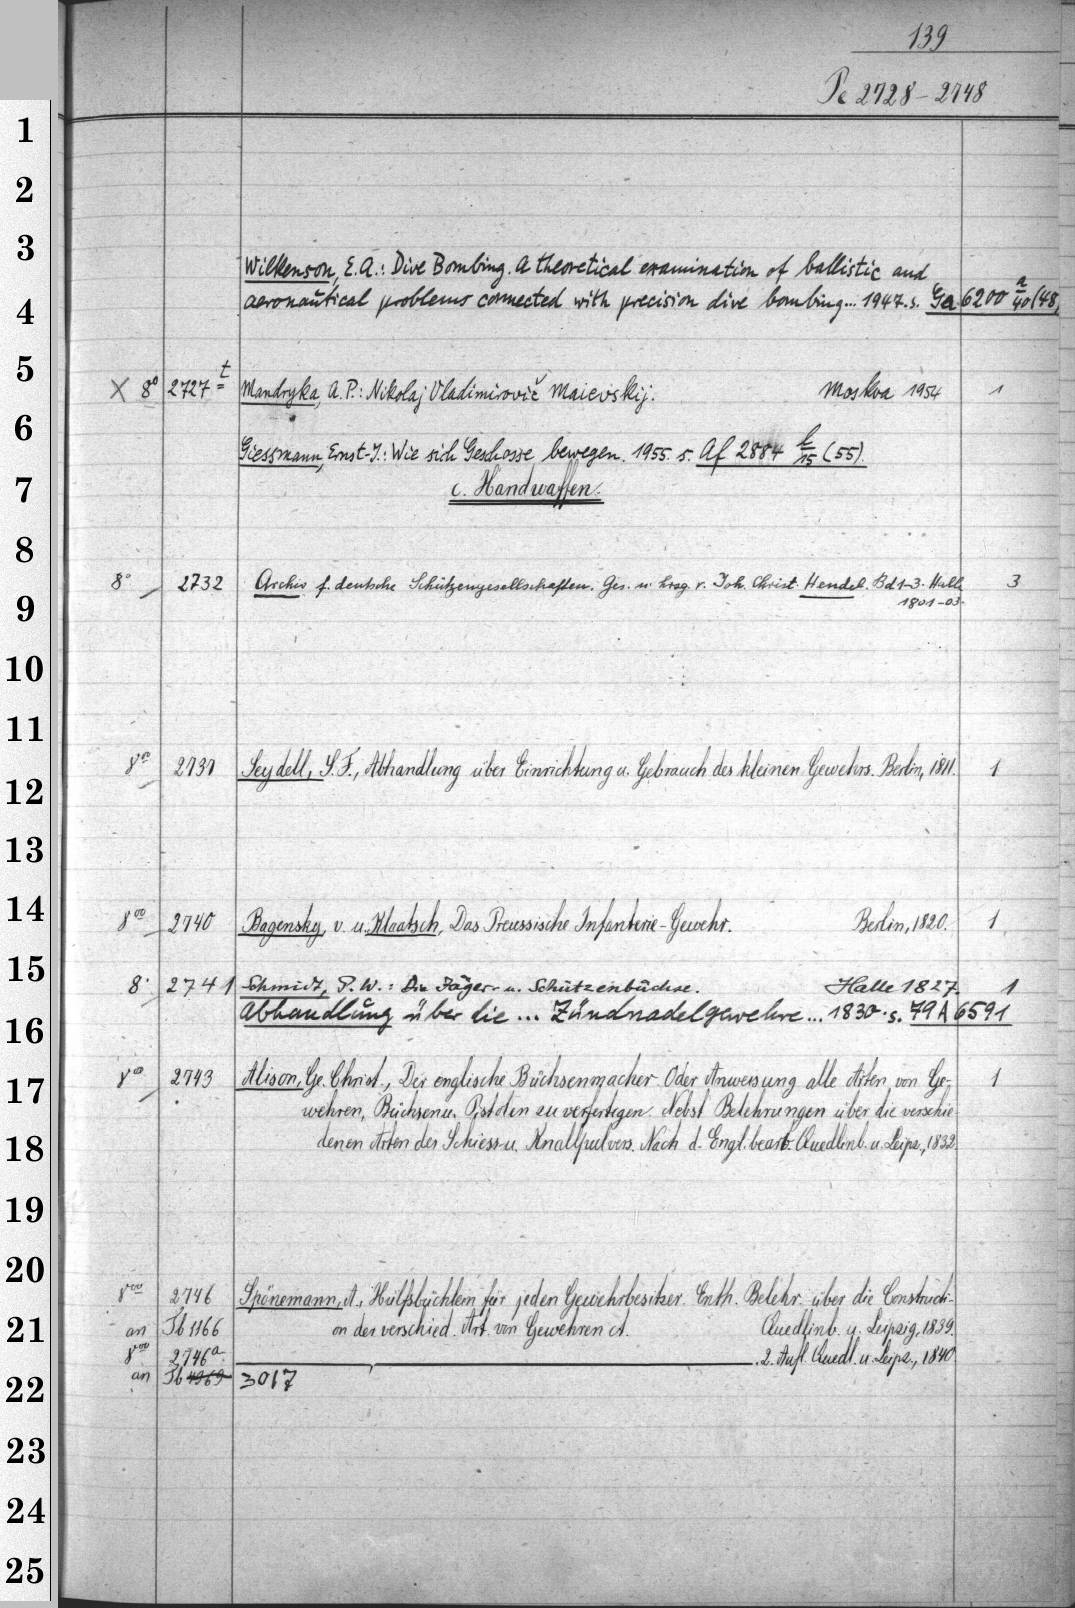 139
Pc 2728-2748
1
2
3
Wilkenson, E.A.: Dive Bombing. A theoretical examination of ballistic and
4
aeronautical problems connected with precision dive bombing... 1947. s. Ga 6200 a/40 (48)
5
X 8° 2727 t Mandryka, A.P.: Nikolaj Vladimirovič Maievskij. Moskva 1954 1
6
Giessmann, Ernst-J.: Wie sich Geschosse bewegen. 1955. s. Af 2884 b/15 (55).
7
c. Handwaffen.
8
8° 2732 Archiv f. deutsche Schützengesellschaften. Ges. u. hrsg. v. Joh. Christ. Hendel. Bd 1-3. Halle 3
9
1801-03.
10
11
8° 2737 Seydell, S.F., Abhandlung über Einrichtung u. Gebrauch des kleinen Gewehrs. Berlin, 1811. 1
12
13
14
8° 2740 Bagensky, v. u. Klaatsch, Das Preussische Infanterie-Gewehr. Berlin, 1820. 1
15
8° 2741 Schmidt, P.W.: Die Jäger- u. Schützenbüchse. Halle 1827. 1
16
Abhandlung über die ... Zündnadelgewehre... 1830. s. 79 A 6591
17
8° 2743 Alison, Ge. Christ., Der englische Büchsenmacher Oder Anweisung alle Arten von Ge- 1
wehren, Büchsen u. Pistolen zu verfertigen. Nebst Belehrungen über die verschie-
18
denen Arten des Schiess- u. Knallpulvers. Nach d. Engl. bearb. Quedlinb. u. Leipz., 1832.
19
20
8° 2746 Spönemann, A., Hülfsbüchlein für jeden Gewehrbesitzer. Enth. Belehr. über die Constructi-
21
an Tb 1166 on der verschied. Art. von Gewehren ct. Quedlinb. u. Leipzig, 1839.
8° 2746a. 2. Aufl. Quedl. u. Leipz., 1840
22
an Tb 4969 3017
23
24
25